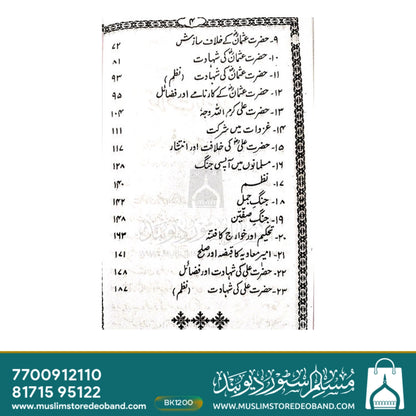 ۴
۹- حضرت عثمانؓ کے خلاف سازش ۷۲
۱۰- حضرت عثمانؓ کی شہادت ۸۱
۱۱- حضرت عثمانؓ کی شہادت (نظم) ۹۳
۱۲- حضرت عثمانؓ کے کارنامے اور فضائل ۹۵
۱۳- حضرت علی کرم اللہ وجہہٗ ۱۰۴
۱۴- غزوات میں شرکت ۱۱۱
۱۵- حضرت علیؓ کی خلافت اور انتشار ۱۱۷
۱۶- مسلمانوں میں آپسی جنگ ۱۲۸
۱۷- نظم ۱۴۰
۱۸- جنگِ جمل ۱۴۲
۱۹- جنگِ صفّین ۱۴۸
۲۰- تحکیم اور خوارج کا فتنہ ۱۶۳
۲۱- امیر معاویہؓ کا قبضہ اور صلح ۱۷۱
۲۲- حضرت علیؓ کی شہادت اور فضائل ۱۷۸
۲۳- حضرت علیؓ کی شہادت (نظم) ۱۸۷
7700912110
81715 95122
www.muslimstoredeoband.com
BK1200
مسلم اسٹور دیوبند
WWW.MUSLIMSTOREDEOBAND.COM